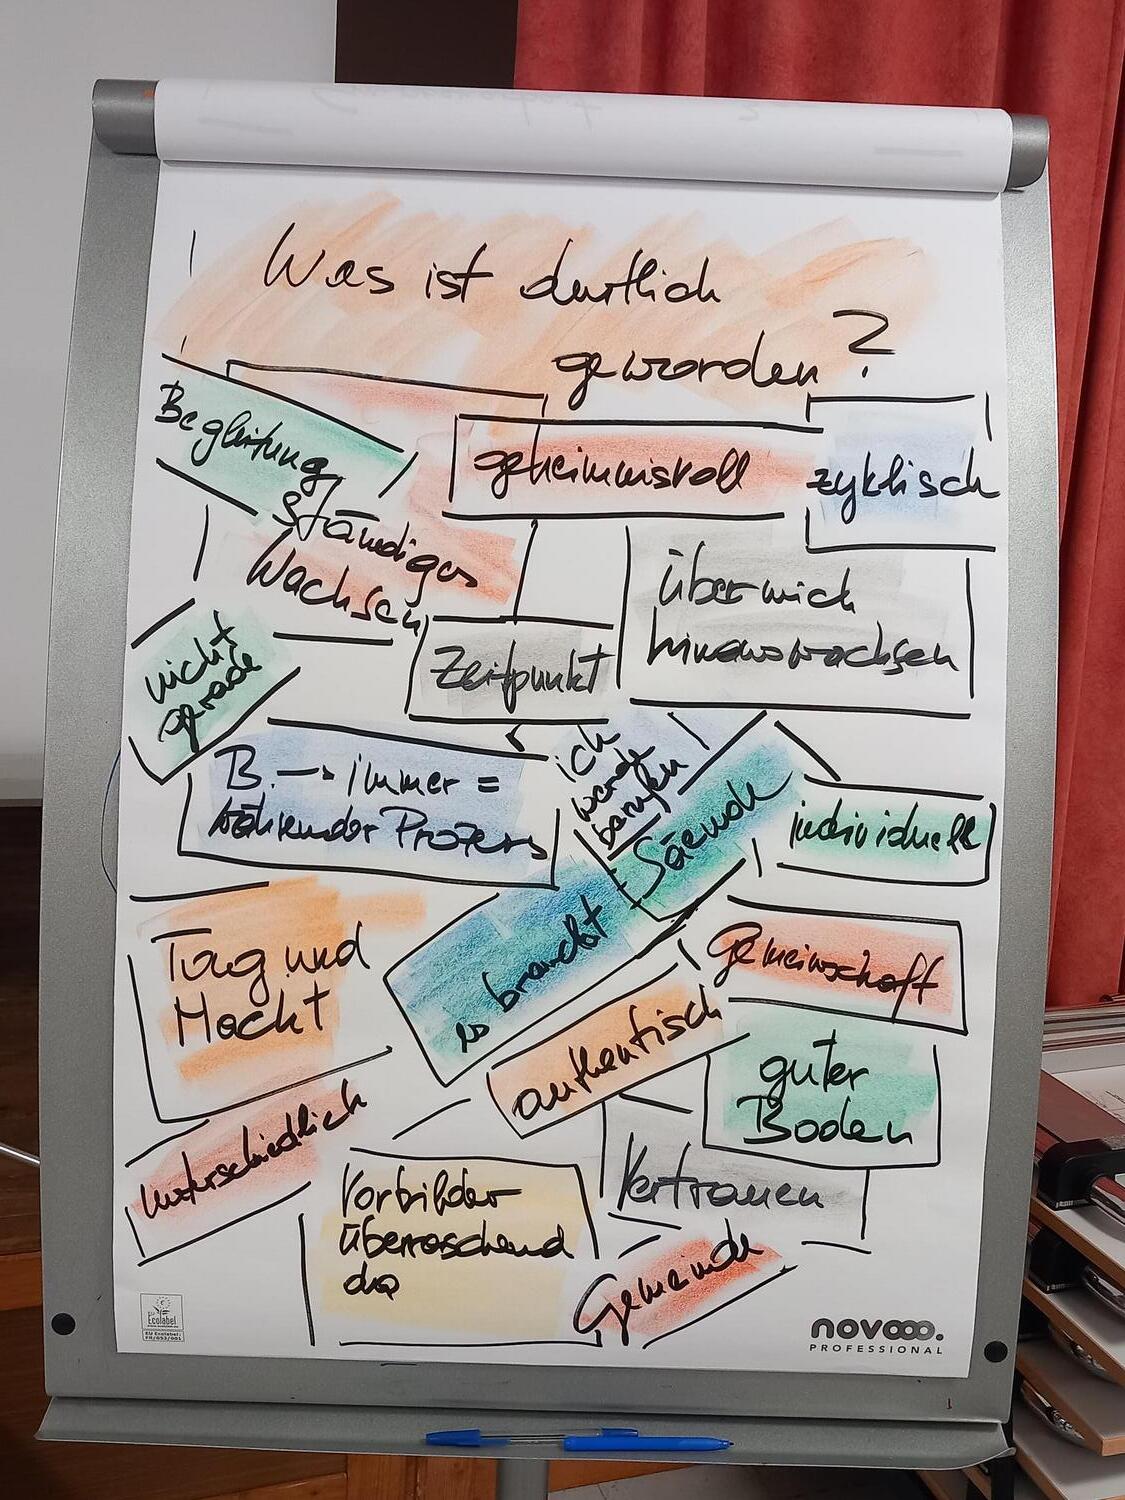 Was ist deutlich
geworden?
Begleitung
geheimnisvoll
zyklisch
ständiges
Wachsen
über mich
hinauswachsen
nicht
gerade
Zeitpunkt
ich
werde
berufen
B. → immer =
währender Prozess
Säende
individuell
es braucht
Gemeinschaft
Tag und
Nacht
authentisch
guter
Boden
unterschiedlich
Vorbilder
überraschend
da
Vertrauen
Gemeinde
Ecolabel
EU Ecolabel:
FR/053/001
novooo.
PROFESSIONAL